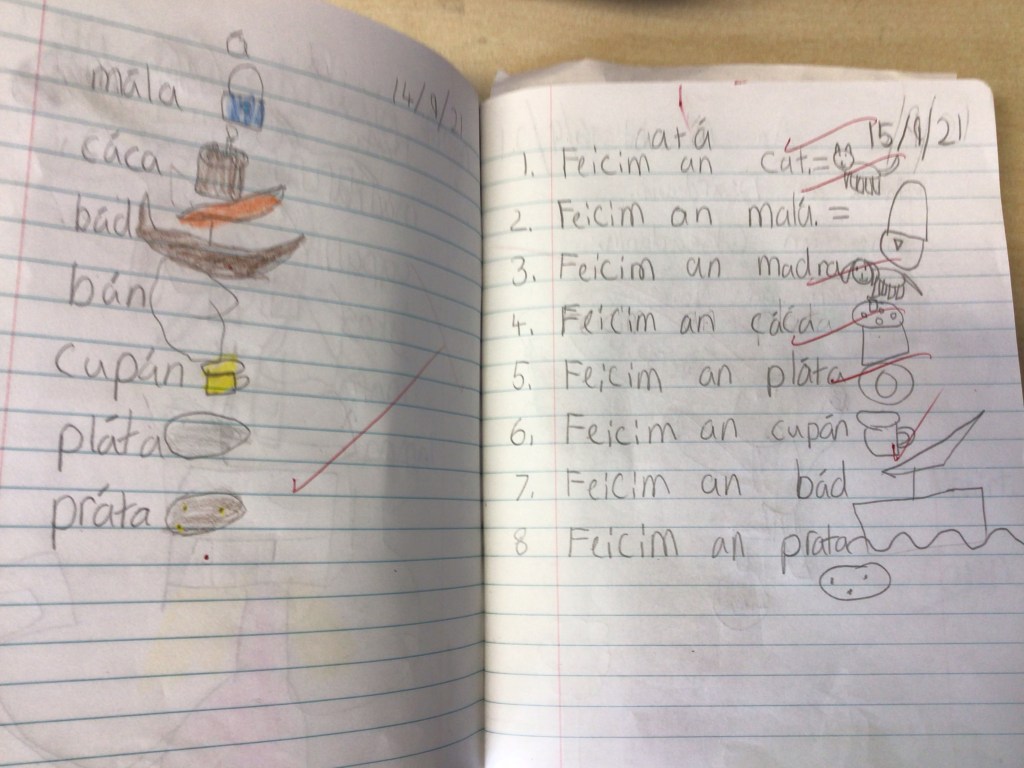 á
mála
14/9/21
cáca
bád
bán
cupán
pláta
práta
aatá
15/9/21
1. Feicim an cat.=
2. Feicim an malá. =
3. Feicim an madra
4. Feicim an cáca
5. Feicim an pláta
6. Feicim an cupán
7. Feicim an bád
8 Feicim an prata